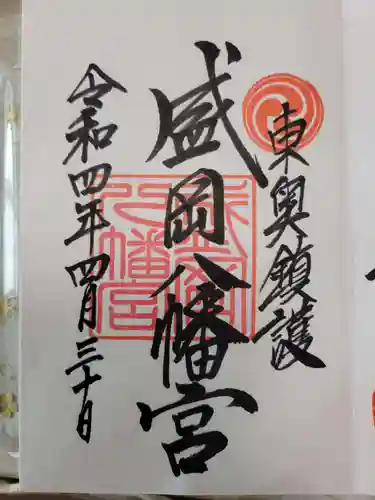 東奥鎮護
盛岡八幡宮
令和四年四月三十日